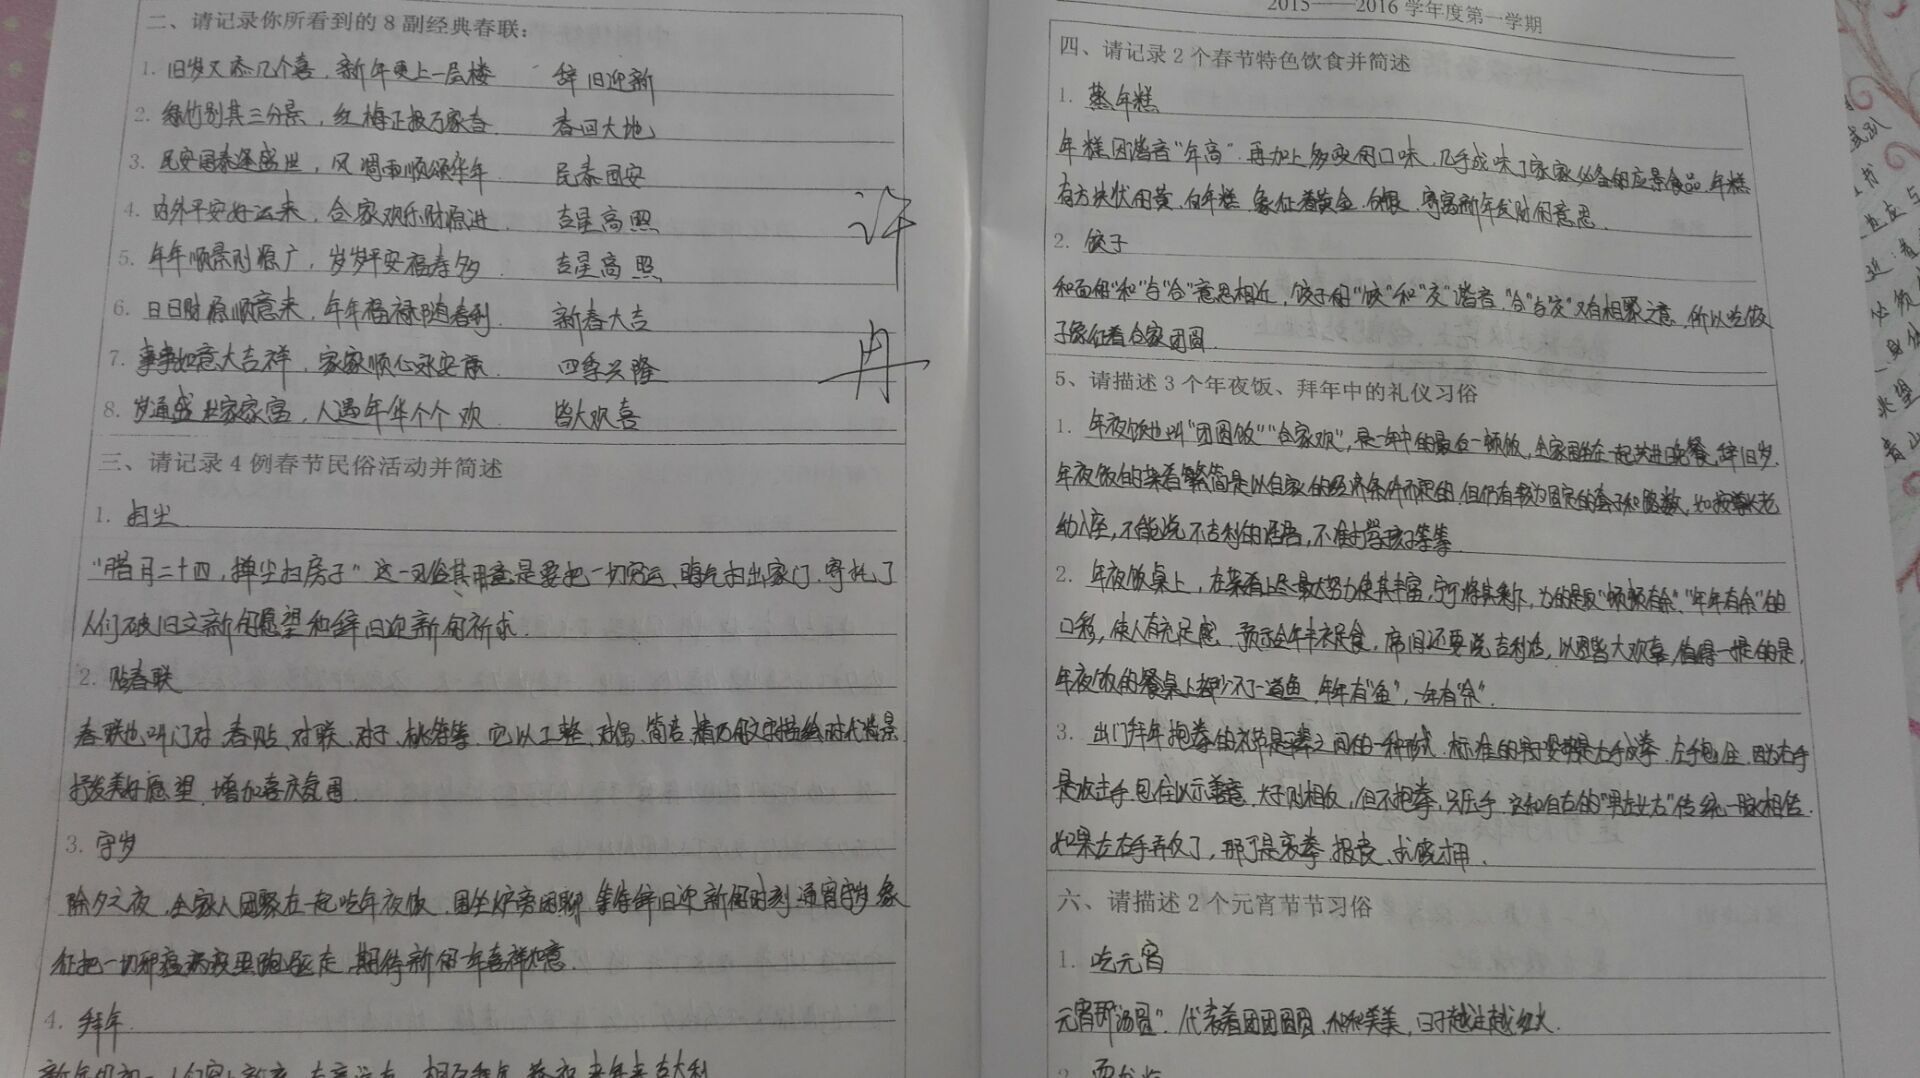 二、请记录你所看到的8副经典春联：
1. 旧岁又添几个喜，新年更上一层楼 辞旧迎新
2. 绿竹别其三分景，红梅正报万家春 春回大地
3. 民安国泰逢盛世，风调雨顺颂华年 民泰国安
4. 内外平安好运来，合家欢乐财源进 吉星高照
5. 年年顺景财源广，岁岁平安福寿多 吉星高照
6. 日日财源顺意来，年年福禄随春到 新春大吉
7. 事事如意大吉祥，家家顺心永安康 四季兴隆
8. 岁通盛世家家富，人遇年华个个欢 皆大欢喜
三、请记录4例春节民俗活动并简述
1. 扫尘
“腊月二十四，掸尘扫房子”这一习俗其用意是要把一切穷运、晦气扫出家门，寄托了
人们破旧立新的愿望和辞旧迎新的祈求．
2. 贴春联
春联也叫门对、春贴、对联、对子、桃符等．它以工整、对偶、简洁、精巧的文字描绘时代背景
抒发美好愿望，增加喜庆氛围．
3. 守岁
除夕之夜，全家人团聚在一起吃年夜饭，围坐炉旁闲聊，等待辞旧迎新的时刻，通宵守岁，象
征把一切邪瘟病疫照跑驱走，期待新的一年吉祥如意．
4. 拜年
2015——2016学年度第一学期
四、请记录2个春节特色饮食并简述
1. 蒸年糕
年糕因谐音“年高”，再加上多变的口味，几乎成味了家家必备的应景食品．年糕
有方块状的黄、白年糕，象征着黄金、白银，寄寓新年发财的意思．
2. 饺子
和面的“和”与“合”意思相近，饺子的“饺”和“交”谐音，“合”与“交”又有相聚之意，所以吃饺
子象征着合家团圆．
5、请描述3个年夜饭、拜年中的礼仪习俗
1. 年夜饭也叫“团圆饭”“合家欢”，是一年中的最后一顿饭，全家围坐在一起共进晚餐，辞旧岁．
年夜饭的菜肴繁简是以自家的经济条件而定的，但仍有较为固定的套子和路数，如按尊长老
幼入座，不能说不吉利的话语，不准打骂孩子等等
2. 年夜饭桌上，在菜肴上尽最大努力使其丰富，宁可将其剩下，为的是取“顿顿有余”、“年年有余”的
口彩，使人有充足感，预示全年丰衣足食，席间还要说吉利话，以图皆大欢喜，值得一提的是，
年夜饭的餐桌上都少不了一道鱼，年年有“鱼”，年有“余”
3. 出门拜年抱拳的礼节是之间的一种形式．标准的姿势是右手成拳，左手包住，因为右手
是攻击手，包住以示善意，女子则相反，但不抱拳，只压手，这和自古的“男左女右”传统一脉相传．
如果左右手弄反了，那可是哀拳、报丧、求饶才用．
六、请描述2个元宵节节习俗
1. 吃元宵
元宵即“汤圆”，代表着团团圆圆，和和美美，日子越过越红火．
2.